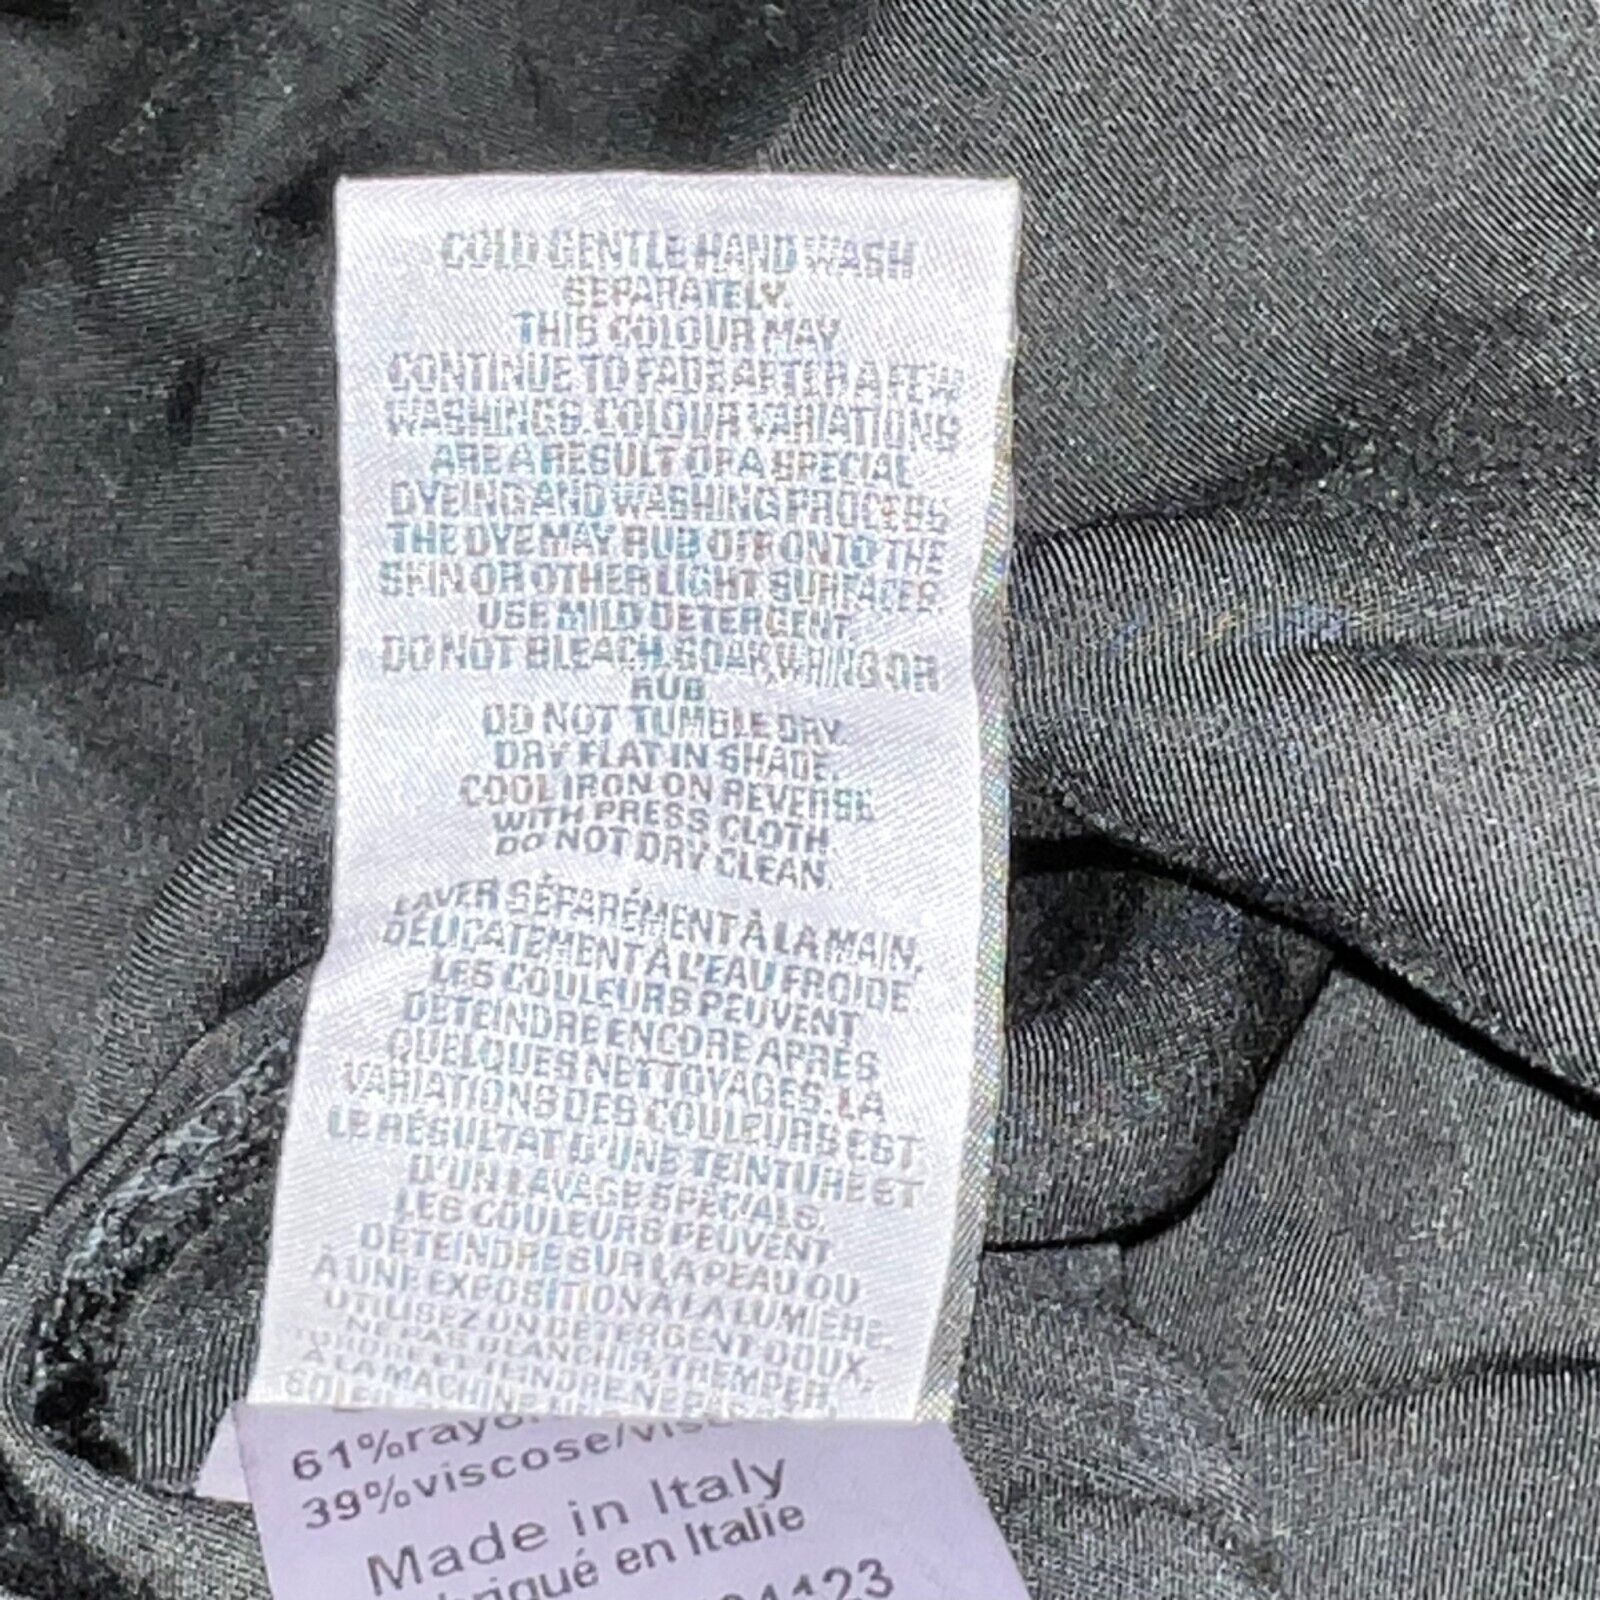 COLD GENTLE HAND WASH
SEPARATELY.
THIS COLOUR MAY
CONTINUE TO FADE AFTER A FEW
WASHINGS. COLOUR VARIATIONS
ARE A RESULT OF A SPECIAL
DYEING AND WASHING PROCESS
THE DYE MAY RUB OFF ONTO THE
SKIN OR OTHER LIGHT SURFACES.
USE MILD DETERGENT.
DO NOT BLEACH, SOAK, WRING OR
RUB
DO NOT TUMBLE DRY.
DRY FLAT IN SHADE.
COOL IRON ON REVERSE
WITH PRESS CLOTH
DO NOT DRY CLEAN.
LAVER SÉPARÉMENT À LA MAIN,
DÉLICATEMENT À L'EAU FROIDE.
LES COULEURS PEUVENT
DÉTEINDRE ENCORE APRÈS
QUELQUES NETTOYAGES. LA
VARIATIONS DES COULEURS EST
LE RÉSULTAT D'UNE TEINTURE ET
D'UN LAVAGE SPÉCIALS.
LES COULEURS PEUVENT
DÉTEINDRE SUR LA PEAU OU
À UNE EXPOSITION À LA LUMIÈRE.
UTILISEZ UN DÉTERGENT DOUX.
NE PAS BLANCHIR, TREMPER,
TORDRE ET
À LA MACHINE
61%rayo
39%viscose/vis
Made in Italy
briqué en Italie
1123